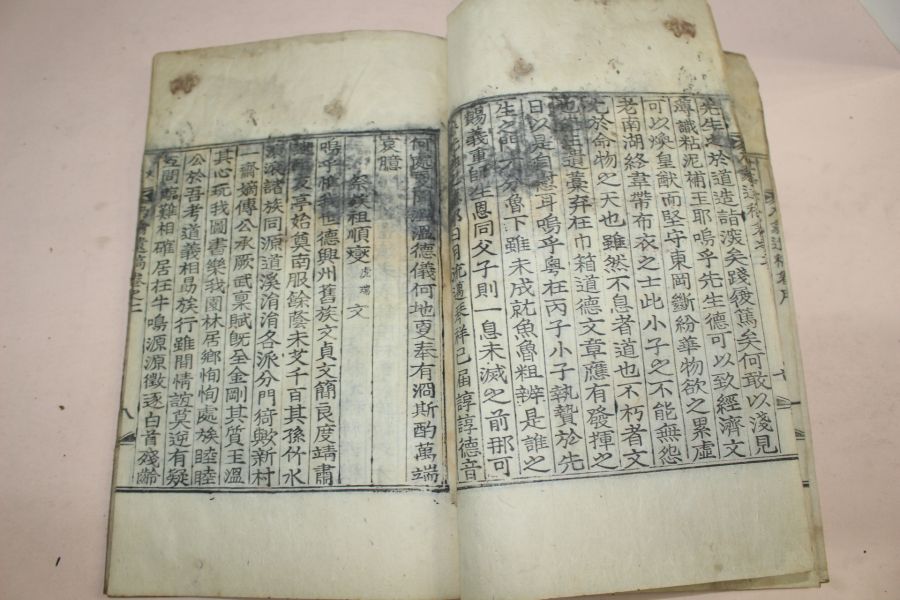 先生之於道造詣深矣踐簉篤矣何敢以淺見
薄識粘泥補玉耶嗚呼先生德可以致經濟文
可以煥皇猷而堅守東岡斷紛華物欲之累虛
老南湖終韋帶布衣之士此小子之不能無怨
尤於命物之天也雖然不息者道也不朽者文
也先生遺藁弃在巾箱道德文章應有發揮之
日以是自慰耳嗚呼粤在丙子小子執贄於先
生之門不分魯下雖未成就魚魯粗辨是誰之
錫義重師生恩同父子則一息未滅之前那可
日月流邁祭祥已届諄諄德音
何處溫溫德儀何地更奉有淚斯酌萬端
哀臆
祭族祖順燮文
嗚呼惟我也德興州舊族文貞文簡良度靖肅
亭始奠南服餘蔭未艾千百其孫竹水
諸族同源道溪淯淯各派分門猗歟新村
一齋嫡傳公承厥武稟賦旣全金剛其質玉溫
其心玩我圖書樂我園林居鄉恂恂處族睦睦
公於吾考道義相勗族行雖間情誼莫逆有疑
臨難相確居在牛鳴源源徵逐白首殘齡
八